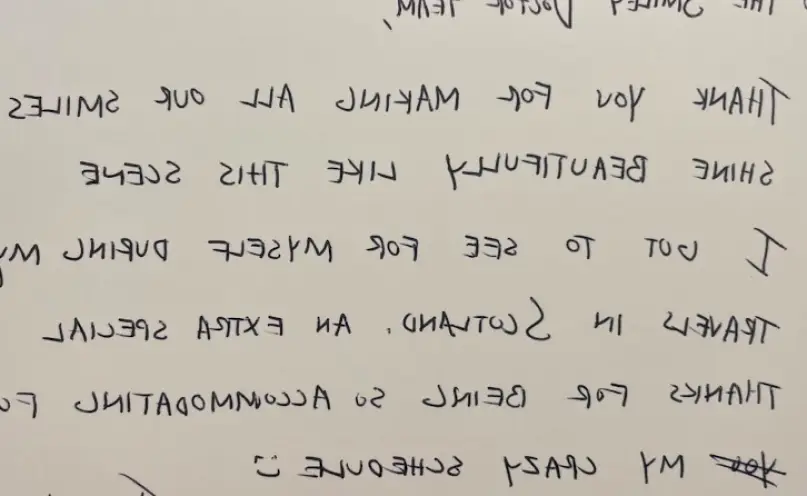 THE SMILEY DOCTOR TEAM,
THANK YOU FOR MAKING ALL OUR SMILES
SHINE BEAUTIFULLY LIKE THIS SCENE
I GOT TO SEE FOR MYSELF DURING MY
TRAVELS IN SCOTLAND. AN EXTRA SPECIAL
THANKS FOR BEING SO ACCOMMODATING FO
MY CRAZY SCHEDULE :)